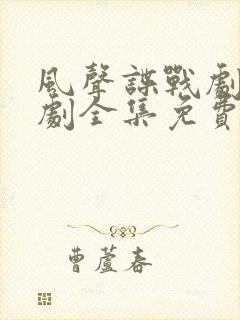 風聲諜戰劇
劇全集免費
曹蘆春